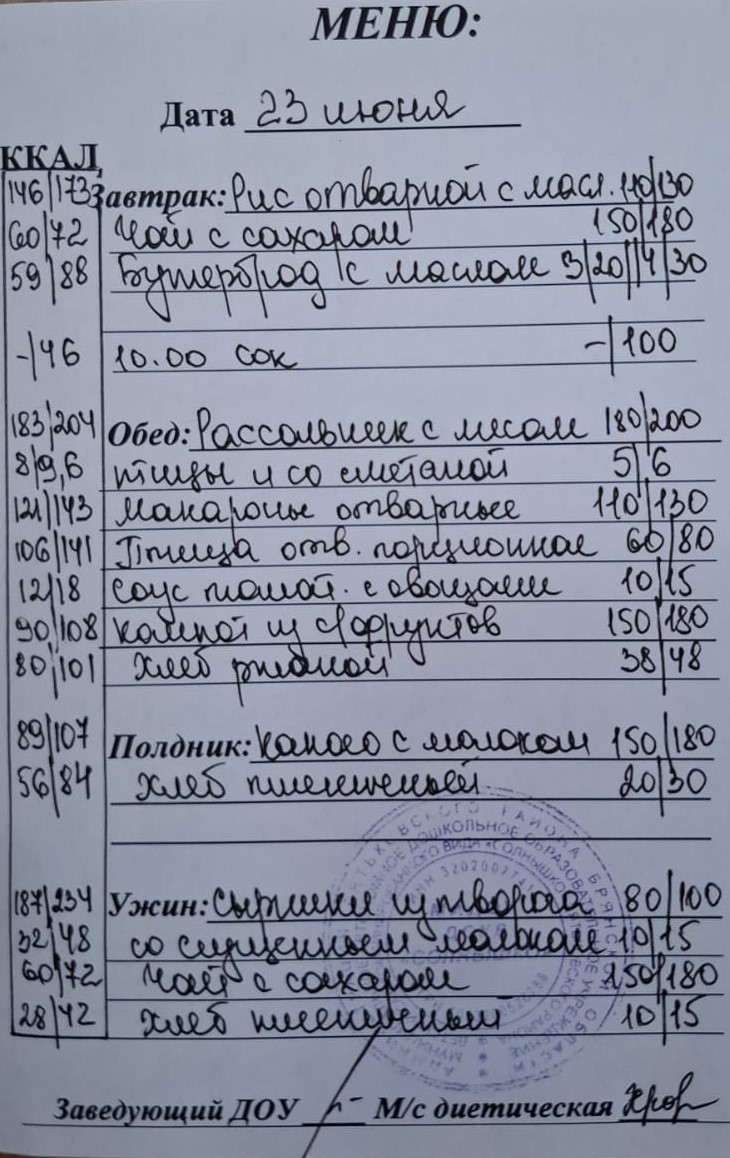 МЕНЮ:
Дата 23 июня
ККАЛ
146/173 Завтрак: Рис отварной с масл. 110/130
60/72 Чай с сахаром 150/180
59/88 Бутерброд с маслом 3/20//4/30
-/46 10.00 сок -/100
183/204 Обед: Рассольник с мясом 180/200
8/9,6 птицы и со сметаной 5/6
121/143 Макароны отварные 110/130
106/141 Птица отв. порционная 60/80
12/18 Соус томат. с овощами 10/15
90/108 Компот из с/фруктов 150/180
80/101 Хлеб ржаной 38/48
89/107 Полдник: Какао с молоком 150/180
56/84 Хлеб пшеничный 20/30
187/234 Ужин: Сырники из творога 80/100
32/48 со сгущенным молоком 10/15
60/72 Чай с сахаром 150/180
28/42 Хлеб пшеничный 10/15
Заведующий ДОУ М/с диетическая